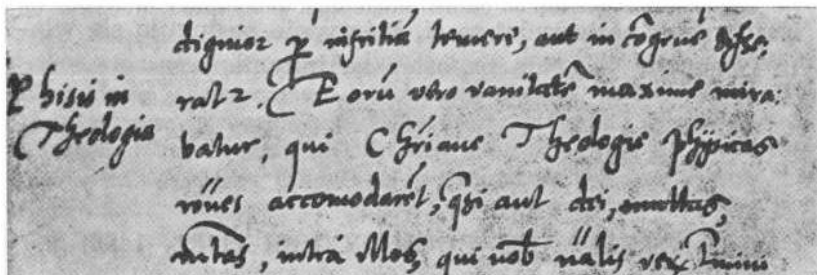 Phisis in
Theologia
dignior p̄ inscitiā temere, aut in cōgruē disse:
rat2. Eorū vero vanitatē maxime mira:
batur, qui Chr̄iane Theologie physicas
rōnes accomodarēt, q̄si aut dei,
intra illos, qui nālis